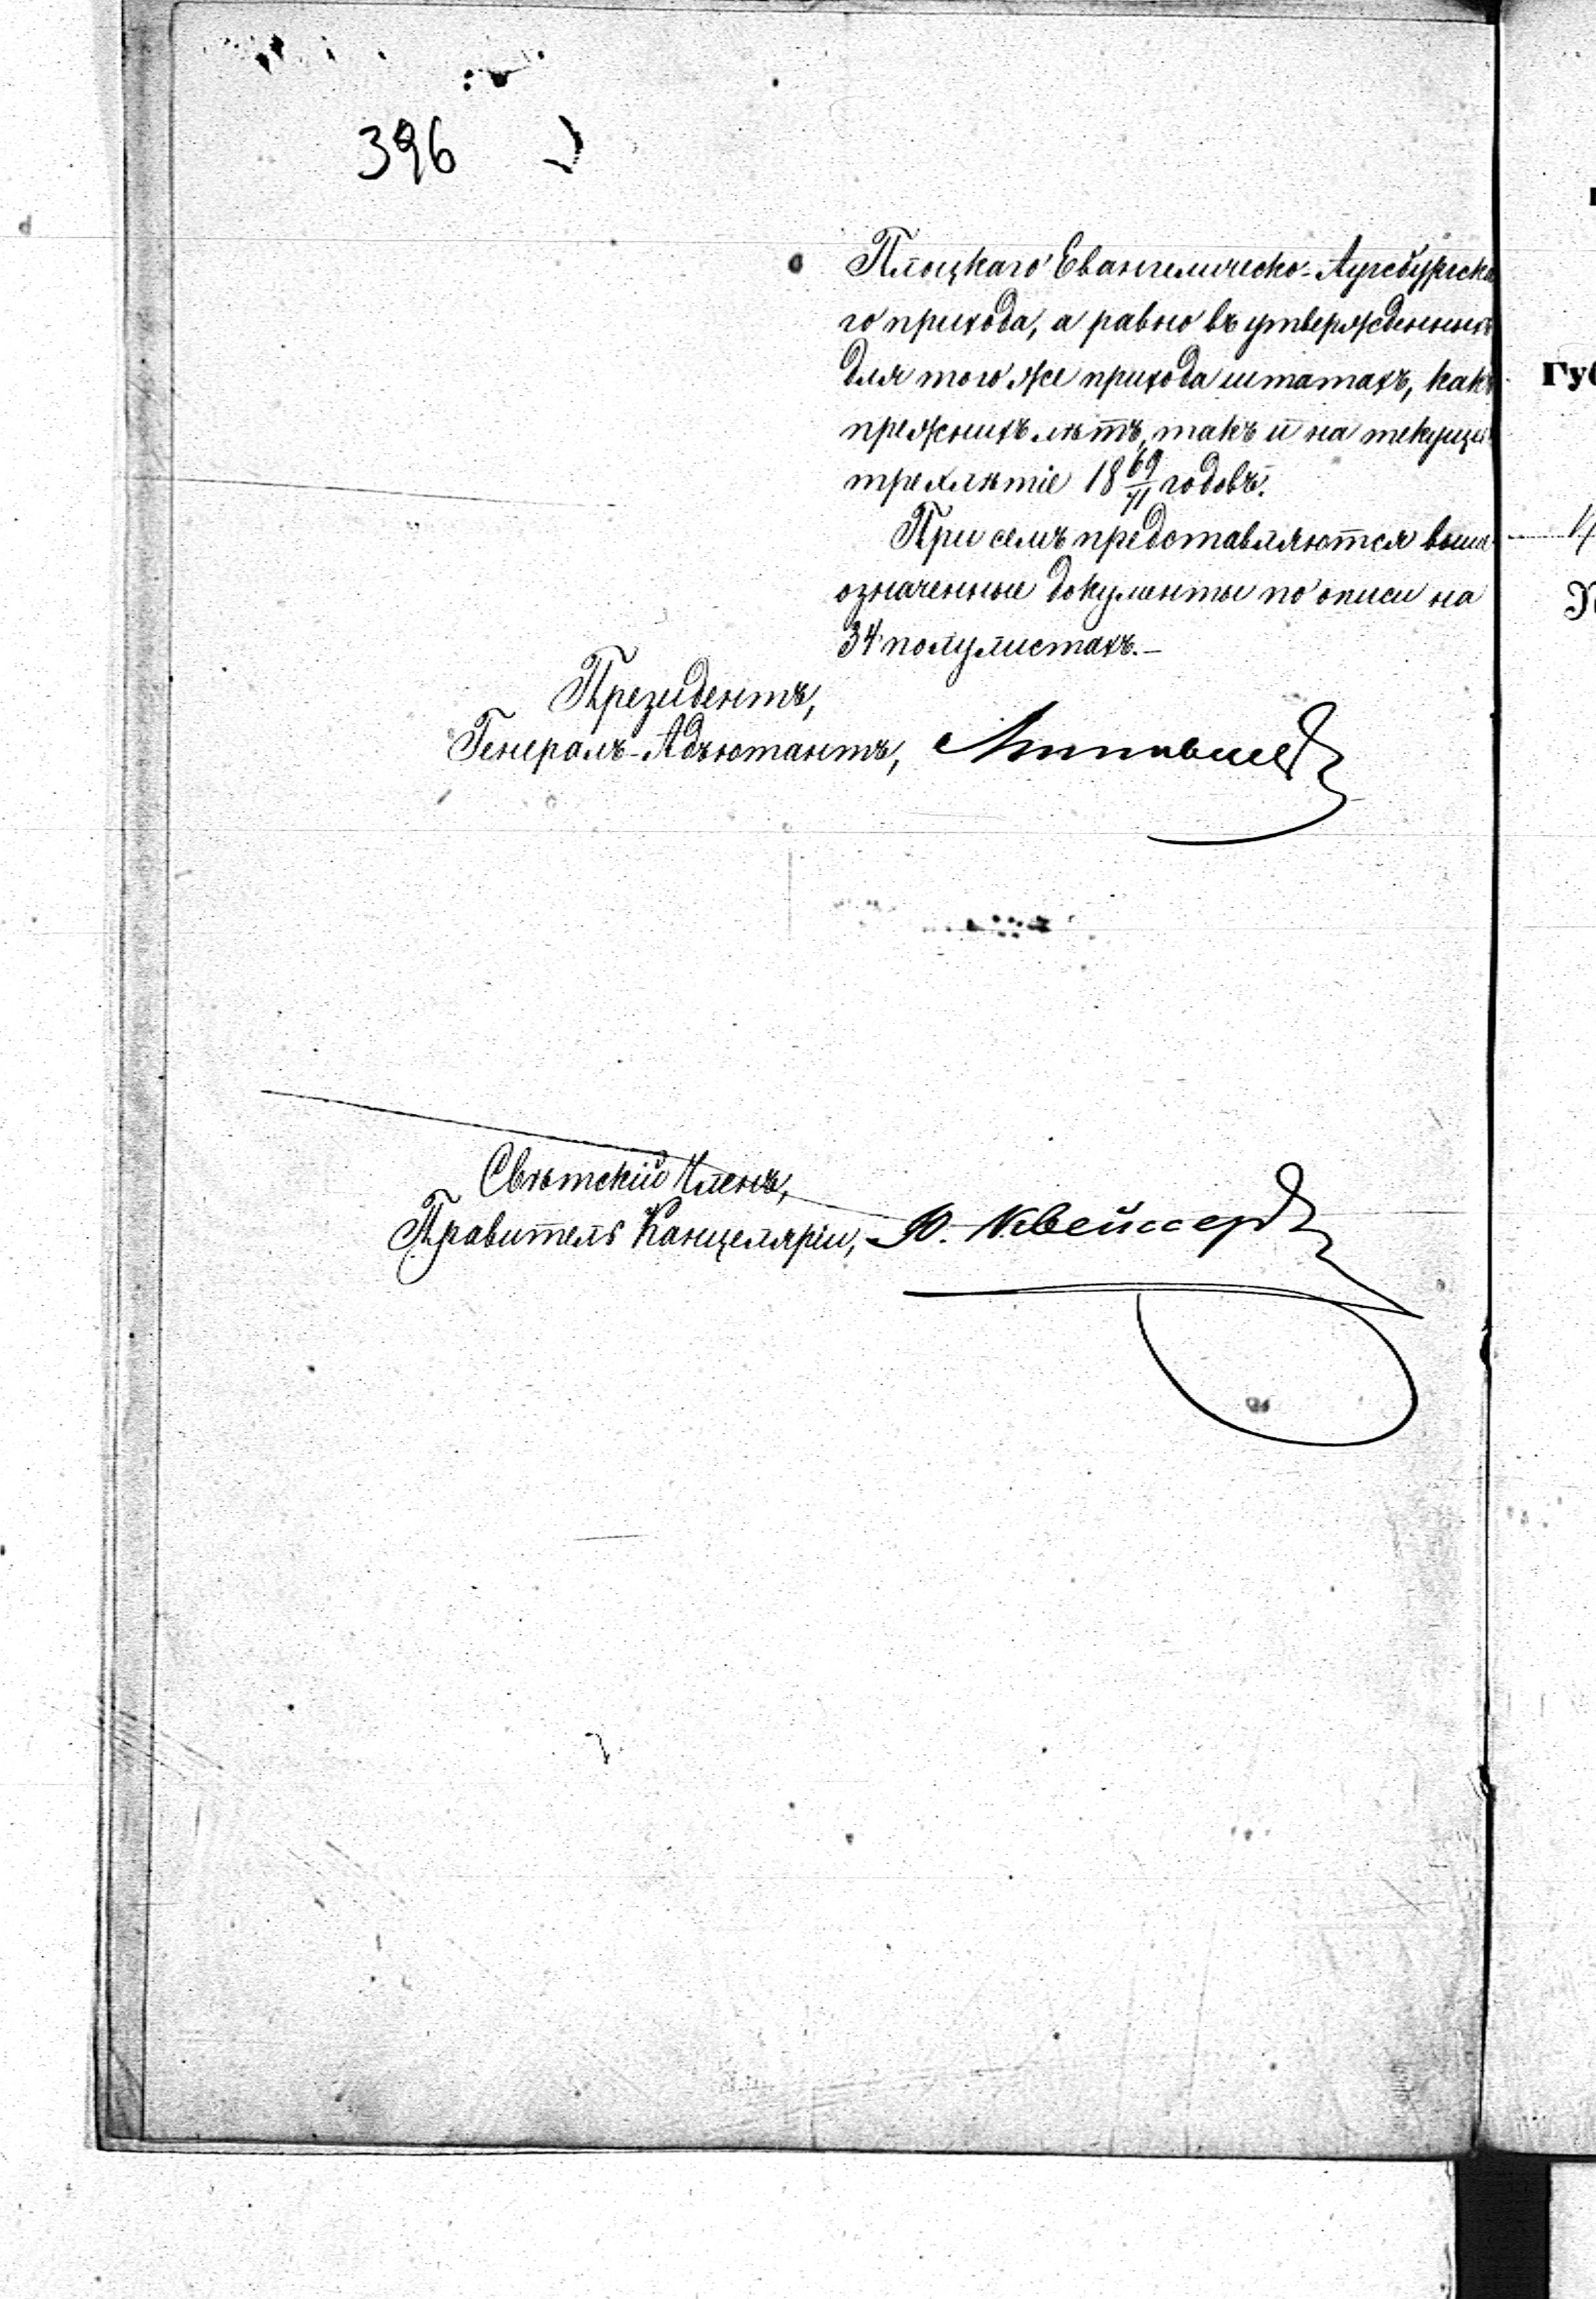 396
Плоцкаго Евангелическо-Аугсбургска
го прихода, а равно въ утвержденныхъ
для того же прихода штатахъ, какъ
прежнихъ лѣтъ, такъ и на текущее
трехлѣтіе 18 69/71 годовъ.
При семъ представляются выше
означенные документы по описи на
34 полулистахъ.—
Президентъ,
Генералъ-Адъютантъ,
Свѣтскій Членъ,
Правитель Канцеляріи, Ю. Квейссеръ
Гу